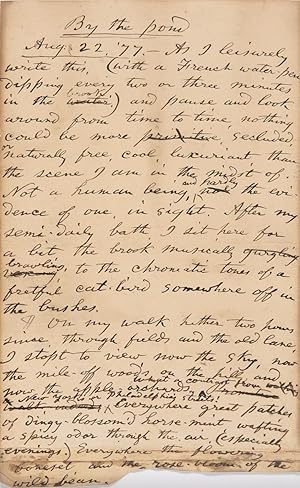 By the pond
Aug. 22, '77. — As I leisurely
write this, (with a French water pen
dipping every two or three minutes
brook
in the water,) and pause and look
around from time to time, nothing
could be more primitive, secluded
or naturally free, cool luxuriant than
the scene I am in the midst of.
and hardly
Not a human being, nor the evi-
dence of one, in sight. After my
semi-daily bath I sit here for
a bit the brook musically gurgling
brawling, to the chromatic tones of a
fretful cat-bird somewhere off in
the bushes.
On my walk hither two hours
since, through fields and the old lane
I stopt to view now the sky, now
the mile-off woods on the hill, and
now the apple orchards. What a contrast from
New York's or Philadelphia's streets!
Everywhere great patches
of dingy-blossom'd horse-mint wafting
a spicy odor through the air, (especially
evenings.) Everywhere the flowering
boneset and the rose-bloom of the
wild bean.